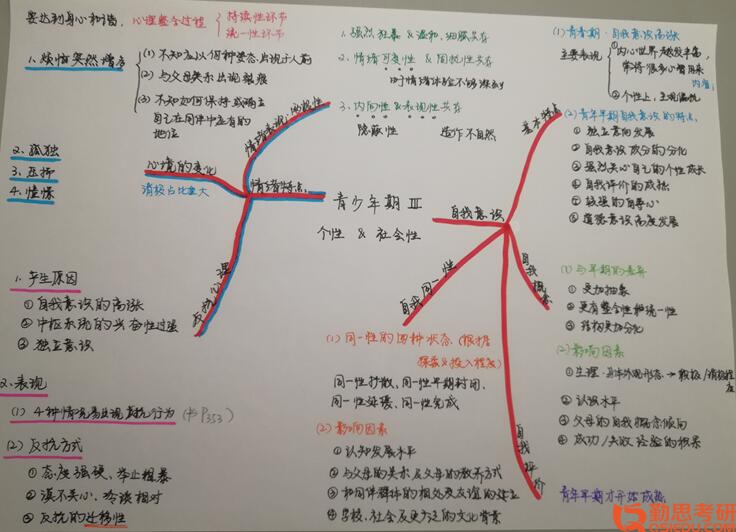 要达到身心和谐，心理整合过程
持续性环节
统一性环节
1. 烦恼突然增多
(1) 不知应以何种姿态出现于人前
(2) 与父母关系出现裂痕
(3) 不知如何保持或确立
自己在同伴中应有的
地位
2. 孤独
3. 压抑
4. 憧憬
心境的变化
消极占比重大
情绪表现：两极性
1. 强烈狂暴 & 温和、细腻共存
2. 情绪可变性 & 固执性共存
对情绪体验不够深刻
3. 内向性 & 表现性共存
隐蔽性
造作不自然
情绪特点
反抗心理
1. 产生原因
① 自我意识的高涨
② 中枢系统的兴奋性过强
③ 独立意识
2. 表现
(1) 4种情况易出现反抗行为 (书P353)
(2) 反抗方式
① 态度强硬、举止粗暴
② 漠不关心、冷淡相对
③ 反抗的迁移性
青少年期 III
个性 & 社会性
自我意识
基本特点
(1) 青春期：自我意识高涨
主要表现
① 内心世界越发丰富，
常将很多心智用来
内省；
② 个性上，主观偏执
(2) 青年早期自我意识的特点：
① 独立意向发展
② 自我意识成分的分化
③ 强烈关心自己的个性成长
④ 自我评价的成熟
⑤ 较强的自尊心
⑥ 道德意识高度发展
自我概念
(1) 与早期的差异
① 更加抽象
② 更有整合性和统一性
③ 结构更加分化
(2) 影响因素
① 生理：身体外观形态→积极/消极程
度
② 认识水平
③ 父母的自我概念倾向
④ 成功/失败经验的积累
自我评价
青年早期才开始成熟
自我同一性
(1) 同一性的四种状态 (根据
探索&投入程度)
同一性扩散、同一性早期封闭、
同一性延缓、同一性完成
(2) 影响因素
① 认知发展水平
② 与父母的关系及父母的教养方式
③ 和同伴群体的相处及友谊的建立
④ 学校、社会及更广泛的文化背景
勤思考研